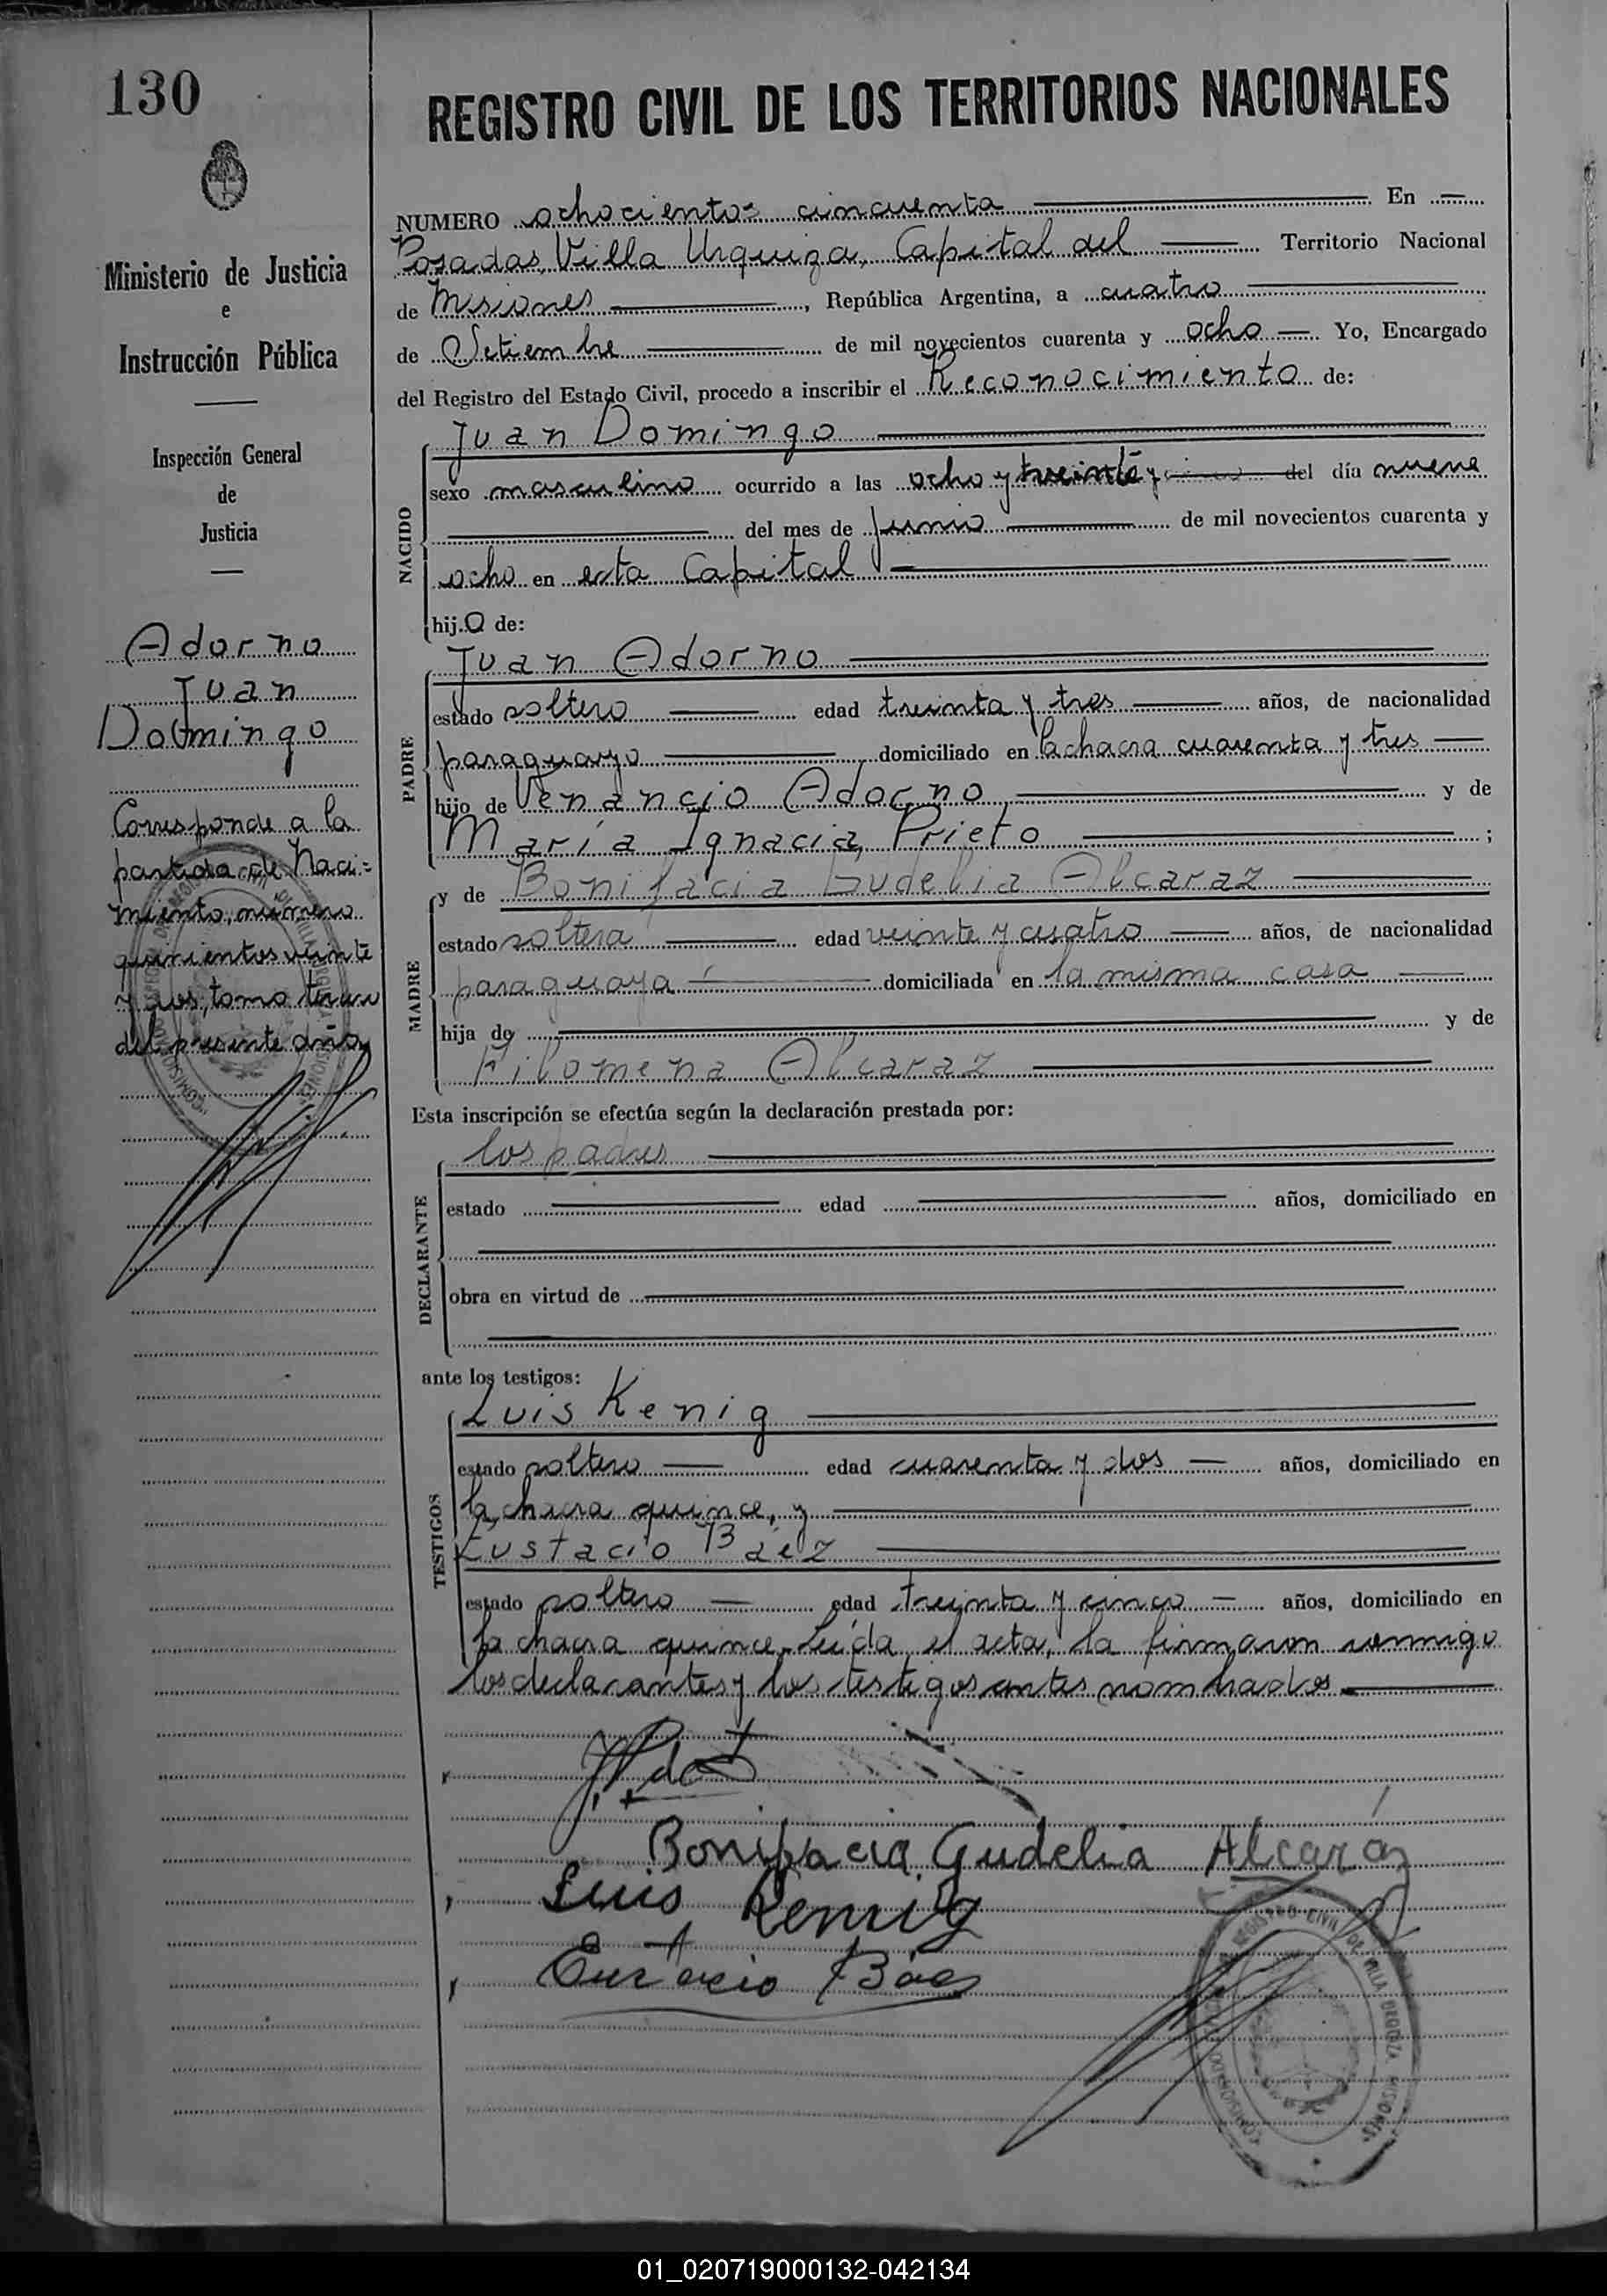 130
Ministerio de Justicia
e
Instrucción Pública
Inspección General
de
Justicia
Adorno
Juan
Domingo
Corresponde a la
partida de Naci=
miento, número
quinientos veinte
y dos, tomo tercero
del presente año
REGISTRO CIVIL DE LOS TERRITORIOS NACIONALES
NUMERO ochocientos cincuenta En
Posadas, Villa Urquiza, Capital del Territorio Nacional
de Misiones, República Argentina, a cuatro
de Setiembre de mil novecientos cuarenta y ocho. Yo, Encargado
del Registro del Estado Civil, procedo a inscribir el Reconocimiento de:
NACIDO
Juan Domingo
sexo masculino ocurrido a las ocho y treinta y del día nueve
del mes de Junio de mil novecientos cuarenta y
ocho en esta Capital
hijo de:
PADRE
Juan Adorno
estado soltero edad treinta y tres años, de nacionalidad
paraguayo domiciliado en la chacra cuarenta y tres
hijo de Venancio Adorno y de
María Ignacia Prieto ;
MADRE
y de Bonifacia Gudelia Alcaraz
estado soltera edad veinte y cuatro años, de nacionalidad
paraguaya domiciliada en la misma casa
hija de y de
Filomena Alcaraz
Esta inscripción se efectúa según la declaración prestada por:
DECLARANTE
los padres
estado edad años, domiciliado en
obra en virtud de
ante los testigos:
TESTIGOS
Luis Kenig
estado soltero edad cuarenta y dos años, domiciliado en
la chacra quince, y
Eustacio Báez
estado soltero edad treinta y cinco años, domiciliado en
la chacra quince. Leída el acta, la firmaron conmigo
los declarantes y los testigos antes nombrados.
Bonifacia Gudelia Alcaráz
Luis Kenig
Eustacio Báez
REGISTRO CIVIL DE VILLA URQUIZA MISIONES
01_020719000132-042134